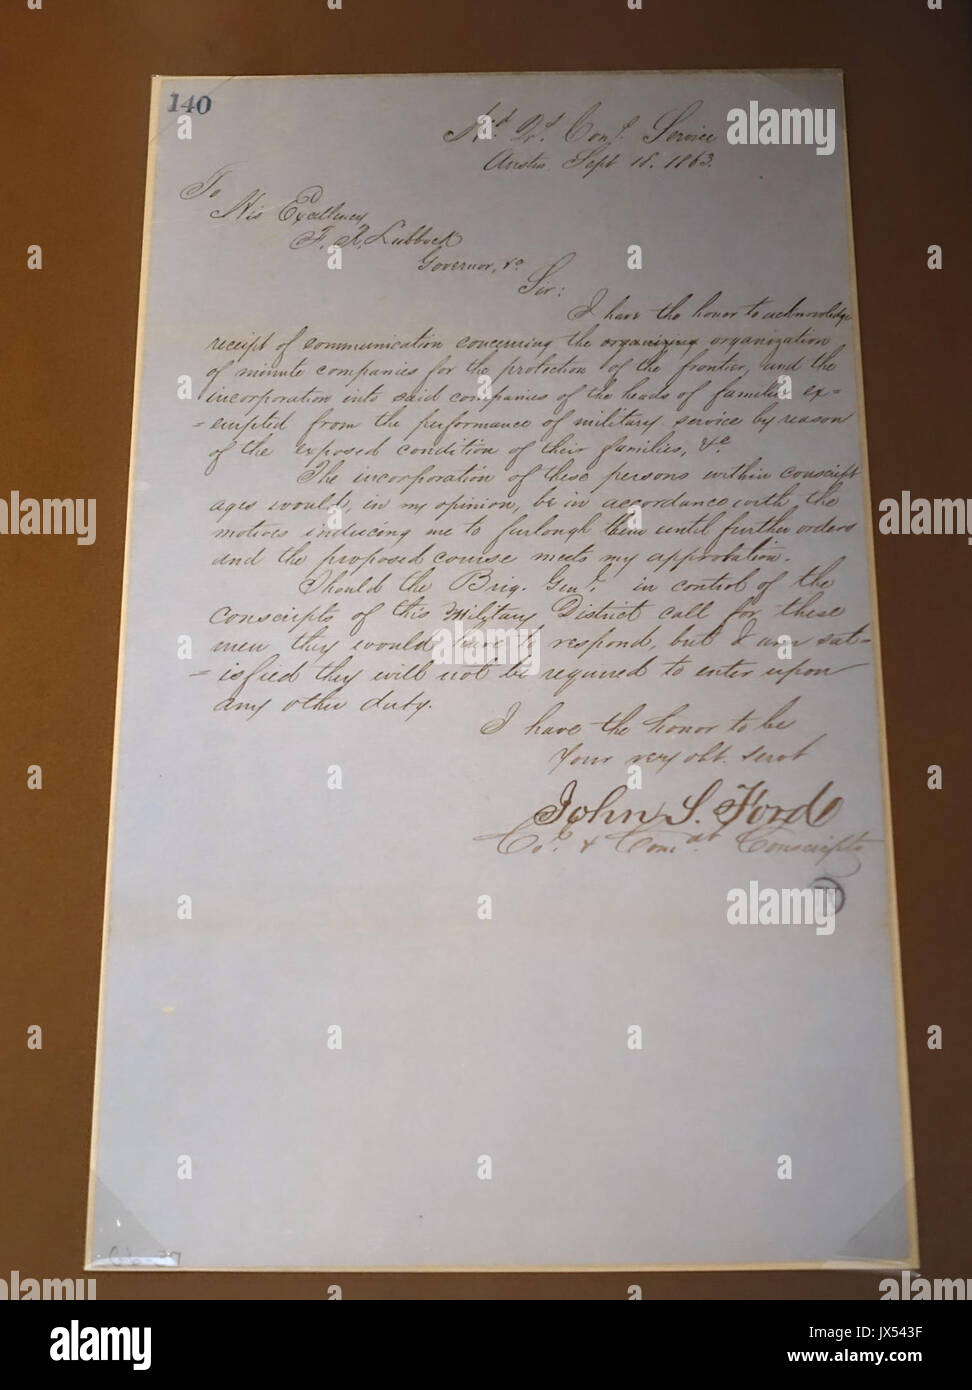 140
Hd. Qrs. Cons. Service
Austin Sept 18. 1863.
To
His Excellency
F. R. Lubbock
Governor, &c
Sir:
I have the honor to acknowledge
receipt of communication concerning the organizing organization
of minute companies for the protection of the frontier, and the
incorporation into said companies of the heads of families ex-
-empted from the performance of military service by reason
of the exposed condition of their families, &c
The incorporation of these persons within conscript
ages would, in my opinion, be in accordance with the
motives inducing me to furlough them until further orders
and the proposed course meets my approbation.
Should the Brig. Genl. in control of the
conscripts of this Military District call for these
men they would have to respond, but I am sat-
-isfied they will not be required to enter upon
any other duty.
I have the honor to be
Your very obt. servt
John S. Ford
Col. & Comdt. Conscripts
alamy
alamy
alamy
alamy
alamy
a
alamy
Image ID: JX543F
www.alamy.com